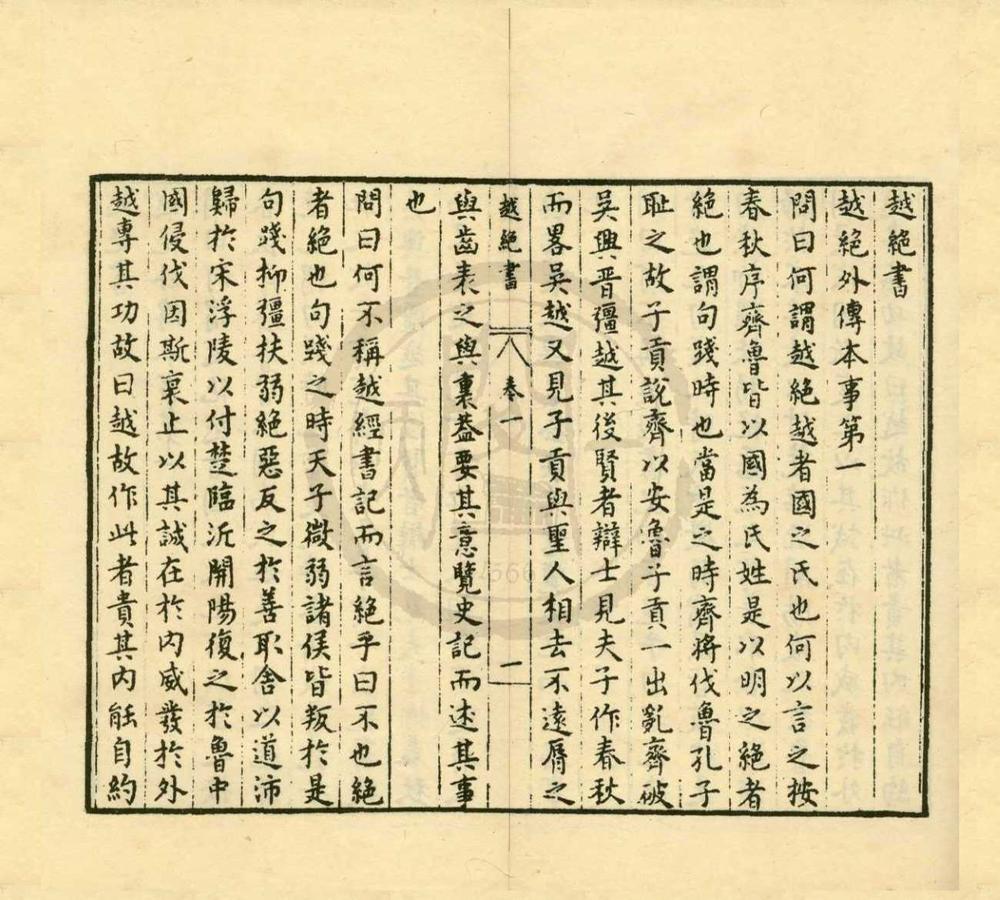 越絕書
越絕外傳本事第一
問曰何謂越絕越者國之氏也何以言之按
春秋序齊魯皆以國為氏姓是以明之絕者
絕也謂句踐時也當是之時齊將伐魯孔子
恥之故子貢說齊以安魯子貢一出亂齊破
吳興晉彊越其後賢者辯士見夫子作春秋
而畧吳越又見子貢與聖人相去不遠脣之
越絕書 卷一 一
與齒表之與裏蓋要其意覽史記而述其事
也
問曰何不稱越經書記而言絕乎曰不也絕
者絕也句踐之時天子微弱諸侯皆叛於是
句踐抑彊扶弱絕惡反之於善取舍以道沛
歸於宋浮陵以付楚臨沂開陽復之於魯中
國侵伐因斯衰止以其誠在於內威發於外
越專其功故曰越故作此者貴其內能自約